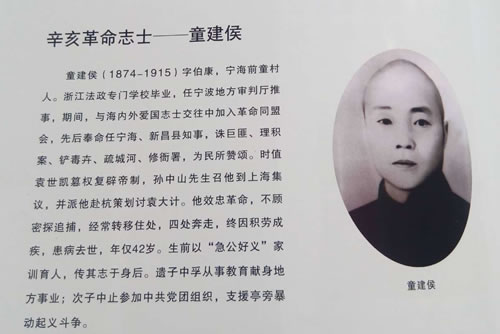 辛亥革命志士——童建侯
童建侯（1874-1915）字伯康，宁海前童村
人。浙江法政专门学校毕业，任宁波地方审判厅推
事，期间，与海内外爱国志士交往中加入革命同盟
会，先后奉命任宁海、新昌县知事，诛巨匪、理积
案、铲毒卉、疏城河、修衙署，为民所赞颂。时值
袁世凯篡权复辟帝制，孙中山先生召他到上海集
议，并派他赴杭策划讨袁大计。他效忠革命，不顾
密探追捕，经常转移住处，四处奔走，终因积劳成
疾，患病去世，年仅42岁。生前以“急公好义”家
训育人，传其志于身后。遗子中孚从事教育献身地
方事业；次子中止参加中共党团组织，支援亭旁暴
动起义斗争。
童建侯